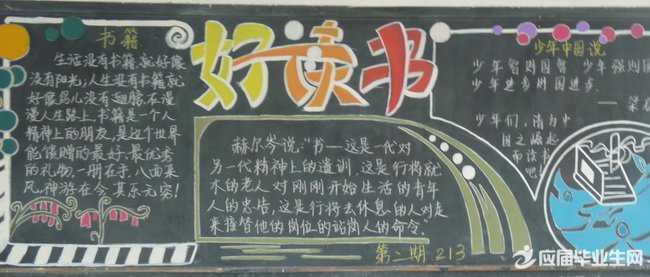 书籍
生活没有书籍,就好像
没有阳光;人生没有书籍,就
好像鸟儿没有翅膀。在漫
漫人生路上,书籍是一个人
精神上的朋友,是这个世界
能馈赠的最好、最优秀
的礼物。一册在手,八面来
风,神游在今,其乐无穷!
好读书
赫尔岑说:“书——这是一代对
另一代精神上的遗训,这是行将就
木的老人对刚刚开始生活的青年
人的忠告,这是行将去休息的人对走
来接替他的岗位的站岗人的命令。
第二期 213
少年中国说
少年智则国智 少年强则国
少年进步则国进步
——梁
少年们,请为中
国之崛起
而读书
吧
应届毕业生网